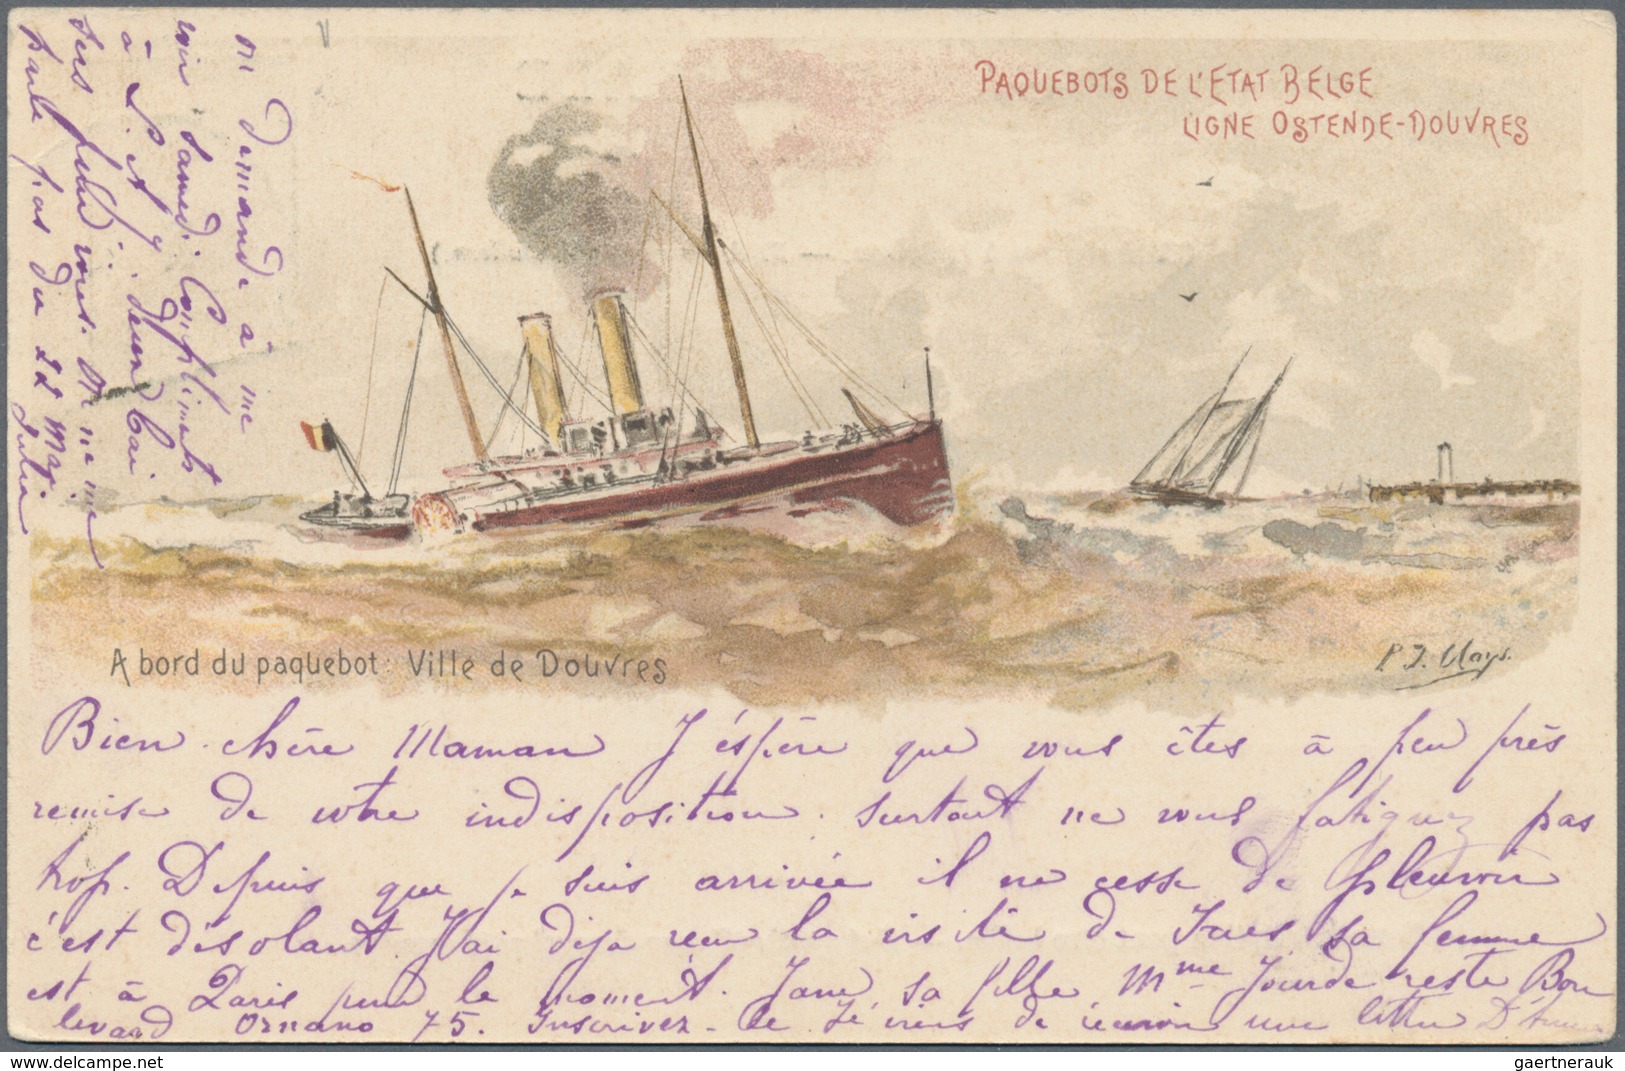 PAQUEBOTS DE L'ETAT BELGE
LIGNE OSTENDE-DOUVRES
A bord du paquebot: Ville de Douvres
P. J. Clays.
Bien chère Maman J'éspère que vous êtes à peu près
remise de votre indisposition. surtout ne vous fatiguez pas
trop. Depuis que je suis arrivée il ne cesse de pleuvoir
c'est désolant. J'ai deja recu la visite de sa femme
est à Paris pour le moment. sa fille Mme Jourde reste Bou
levaad Ornano 75. Inscrivez-le Je viens de recevoir une lettre
on demande à me
voir samedi. Compliments
à
vous. On ne me
parle pas du 22 Mai
gaertnerauk @ delcampe.net